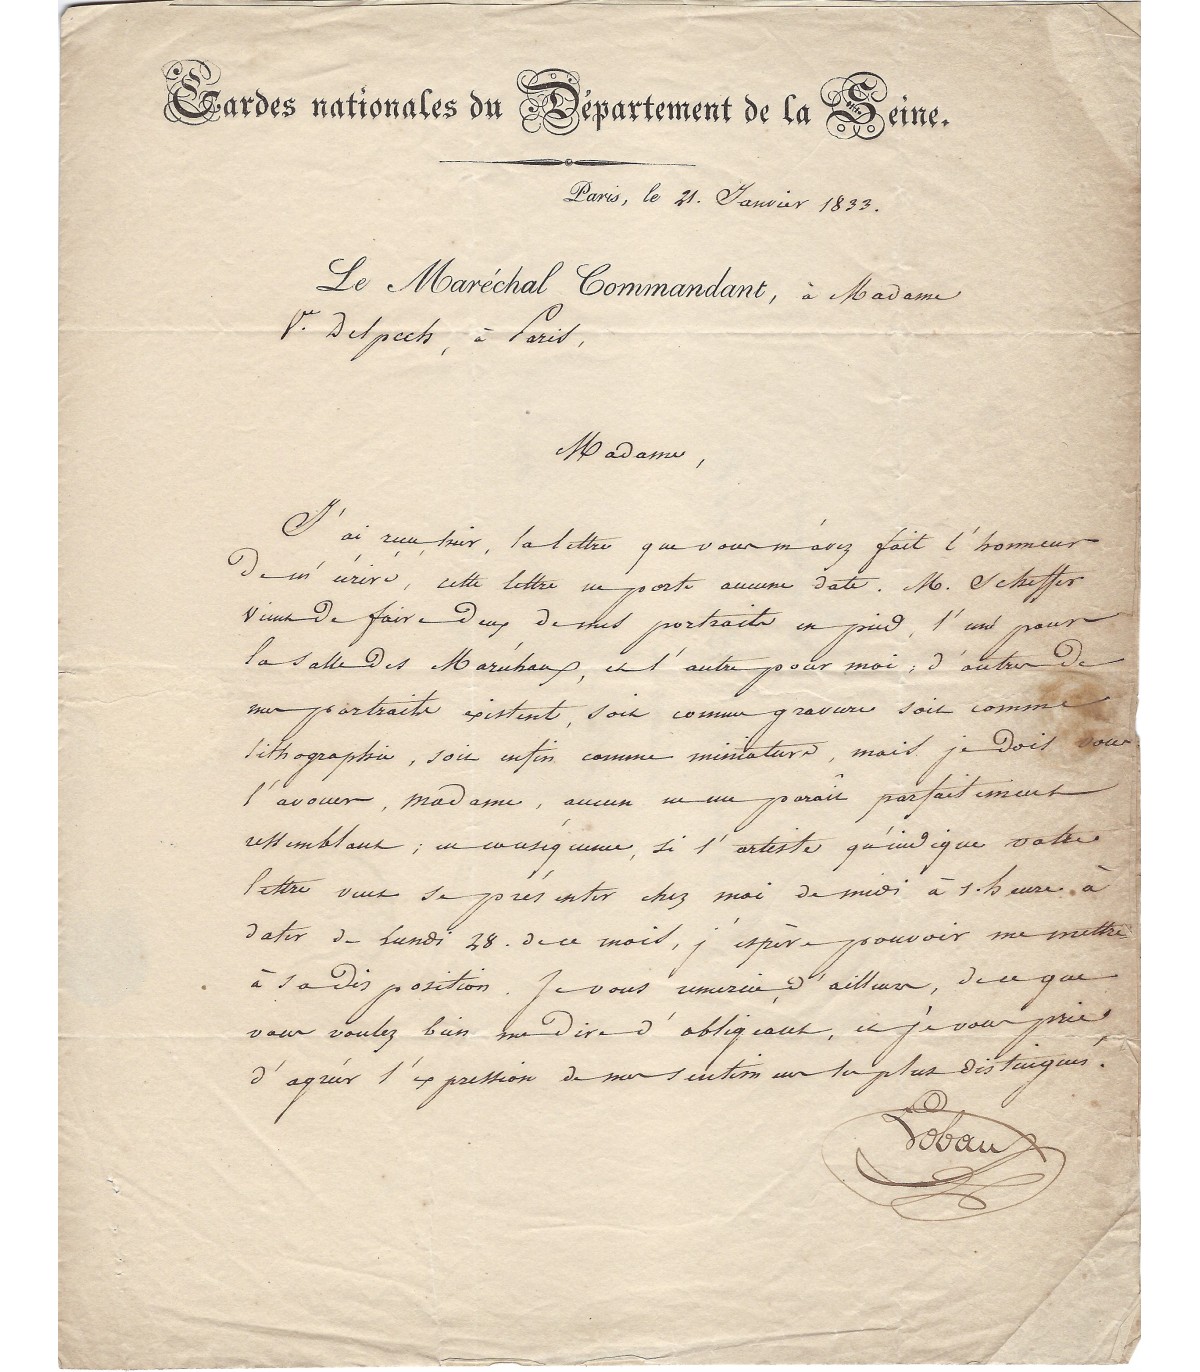 Gardes nationales du Département de la Seine.
Paris, le 21. Janvier 1833.
Le Maréchal Commandant, à Madame
Ve. Delpech, à Paris,
Madame,
J'ai reçu hier, la lettre que vous m'avez fait l'honneur
de m'écrire, cette lettre ne porte aucune date. M. Scheffer
vient de faire deux de mes portraits en pied, l'un pour
la salle des Maréchaux, et l'autre pour moi; d'autres de
mes portraits existent, soit comme gravure soit comme
lithographie, soit enfin comme miniature, mais je dois vous
l'avouer, madame, aucun ne me paraît parfaitement
ressemblant; en conséquence, si l'artiste qu'indique votre
lettre veut se présenter chez moi de midi à 1. heure à
dater de Lundi 28. de ce mois, j'espère pouvoir me mettre
à sa disposition. Je vous remercie, d'ailleurs, de ce que
vous voulez bien me dire d'obligeant, et je vous prie
d'agréer l'expression de mes sentimens les plus distingués.
Lobau